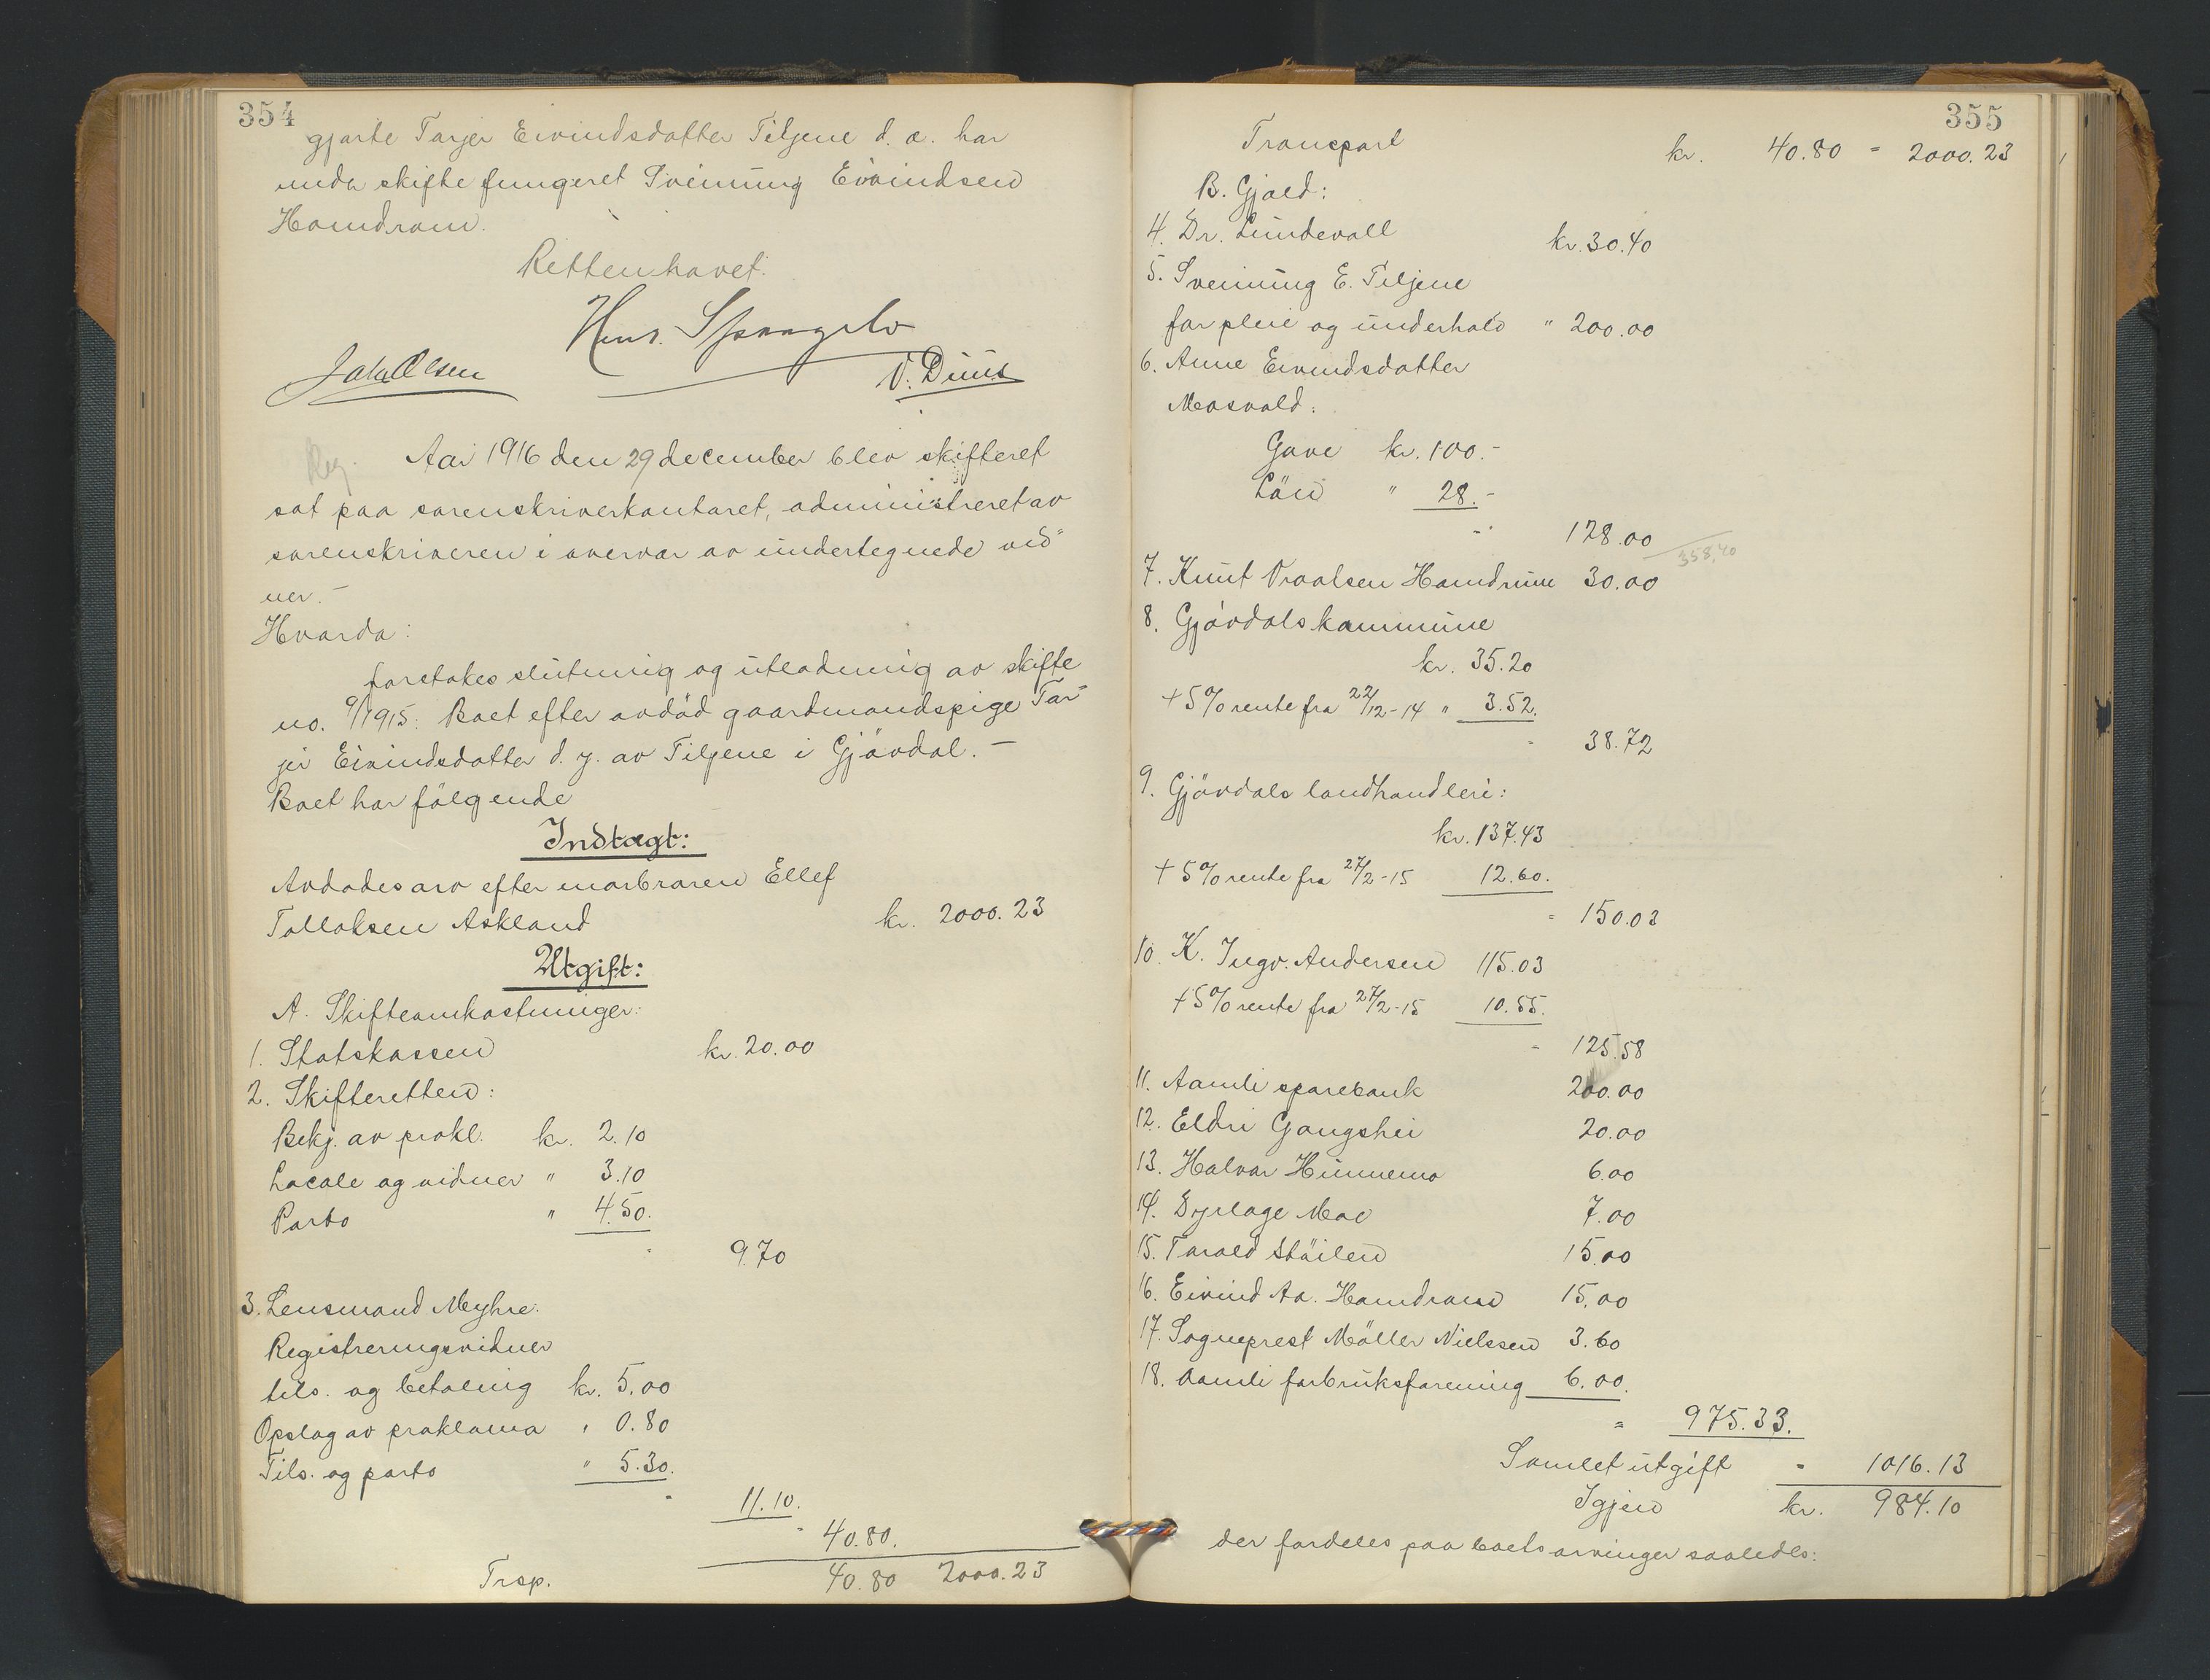 354
gjorte Tarjer Eivindsdatter Tiljene d. æ. har
under skifte fungeret Sveinung Eivindsen
Homdrom.
Retten hævet.
Hens.
Joh. Olsen
V. Duus
Reg.
Aar 1916 den 29 december blev skifteret
sat paa sorenskriverkontoret, administreret av
sorenskriveren i overvær av undertegnede vid-
ner. –
Hvorda:
foretokes slutning og utlodning av skifte
no. 9/1915: Boet efter avdød gaardmandspige Tar-
jer Eivindsdatter d. y. av Tiljene i Gjøvdal. –
Boet har følgende
Indtægt:
Avdødes arv efter morbroren Ellef
Tolloksen Askland kr. 2000.23
Utgift:
A. Skifteomkostninger:
1. Statskassen kr. 20.00
2. Skifteretten:
Bekj. av prokl. kr. 2.10
Locale og vidner " 3.10
Porto " 4.50.
" 9.70
3. Lensmand Myhre:
Registreringsvidner
tils. og betaling kr. 5.00
Opslag av proklama " 0.80
Tils. og porto " 5.30.
" 11.10.
" 40.80.
Trsp. 40.80 2000.23
355
Transport kr. 40.80 = 2000.23
B. Gjæld:
4. Dr. Lundevall kr. 30.40
5. Sveinung E. Tiljene
for pleie og underhold " 200.00
6. Anne Eivindsdatter
Mosvald:
Gave kr. 100.-
Lön " 28.-
" 128.00
358,40
7. Knut Vraalsen Homdrum 30.00
8. Gjövdals kommune
kr. 35.20
+ 5% rente fra 22/12-14 " 3.52.
" 38.72
9. Gjövdals landhandleri:
kr. 137.43
+ 5% rente fra 27/2-15 12.60.
" 150.03
10. K. Ingv. Andersen 115.03
+ 5% rente fra 27/2-15 10.55.
" 125.58
11. Aamli sparebank 200.00
12. Eldri Gangshei 20.00
13. Halvor Hunnemo 6.00
14. Dyrlæge Moe 7.00
15. Tarald Stöilen 15.00
16. Eivind Aa. Homdrom 15.00
17. Sogneprest Möller Nielssen 3.60
18. Aamli forbruksforening 6.00.
= 975.33.
Samlet utgift " 1016.13
Igjen kr. 984.10
der fordeles paa boets arvinger saaledes: